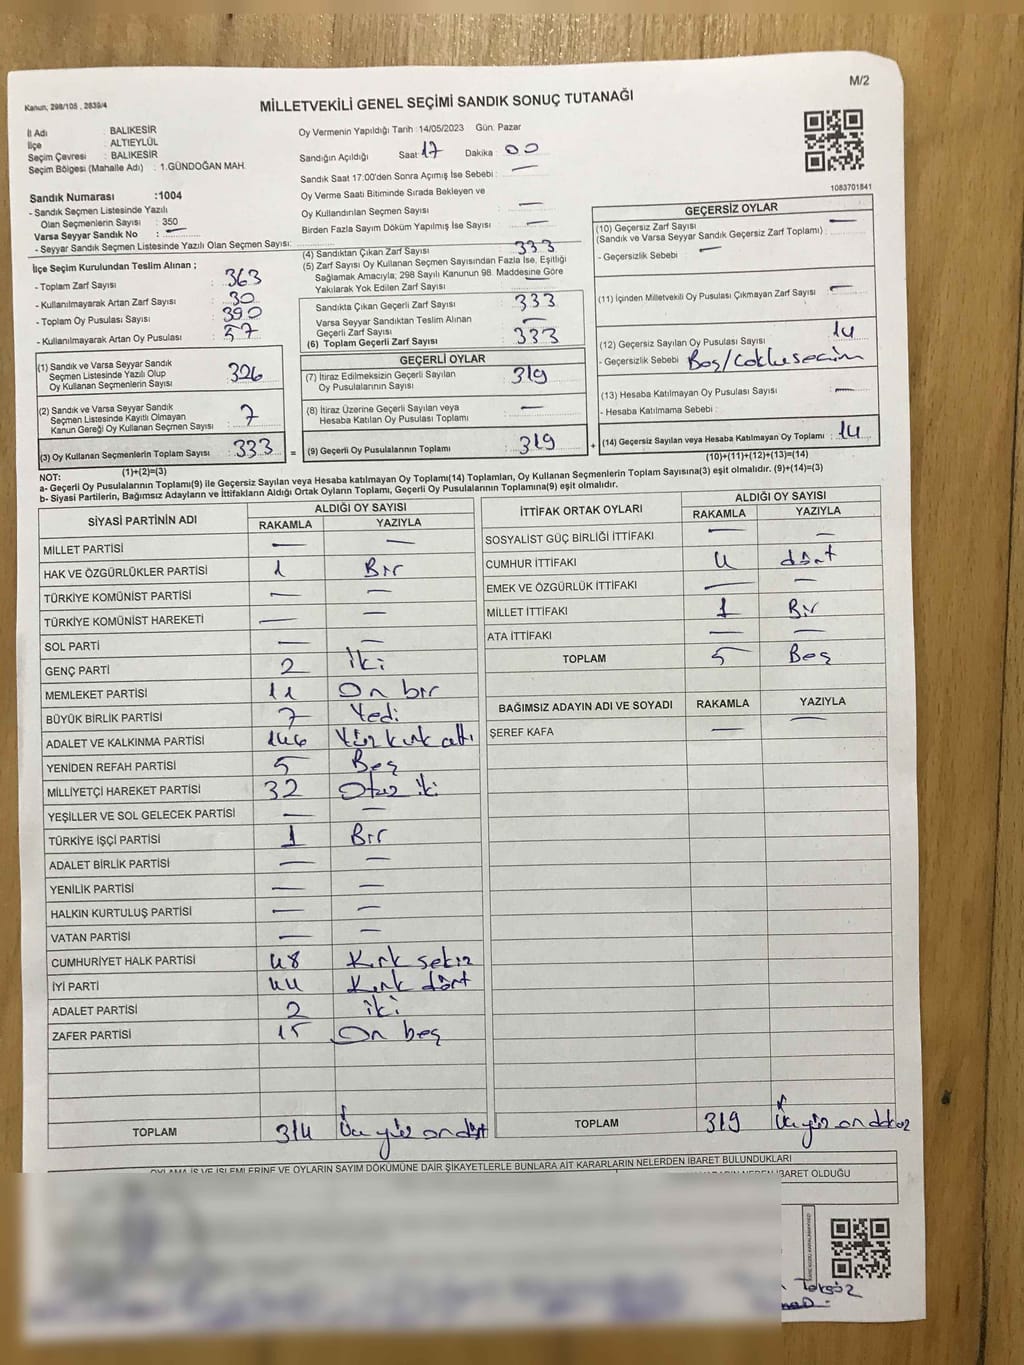 M/2
Kanun, 298/105 , 2839/4
MİLLETVEKİLİ GENEL SEÇİMİ SANDIK SONUÇ TUTANAĞI
İl Adı : BALIKESİR
İlçe : ALTIEYLÜL
Seçim Çevresi : BALIKESİR
Seçim Bölgesi (Mahalle Adı) : 1.GÜNDOĞAN MAH.
Sandık Numarası :1004
- Sandık Seçmen Listesinde Yazılı
Olan Seçmenlerin Sayısı : 350
Varsa Seyyar Sandık No : —
- Seyyar Sandık Seçmen Listesinde Yazılı Olan Seçmen Sayısı:
Oy Vermenin Yapıldığı Tarih : 14/05/2023 Gün: Pazar
Sandığın Açıldığı Saat 17 Dakika 00
Sandık Saat 17:00'den Sonra Açımış İse Sebebi : —
Oy Verme Saati Bitiminde Sırada Bekleyen ve
Oy Kullandırılan Seçmen Sayısı —
Birden Fazla Sayım Döküm Yapılmış İse Sayısı : —
1083701841
İlçe Seçim Kurulundan Teslim Alınan ;
- Toplam Zarf Sayısı : 363
- Kullanılmayarak Artan Zarf Sayısı : 30
- Toplam Oy Pusulası Sayısı : 390
- Kullanılmayarak Artan Oy Pusulası : 57
(1) Sandık ve Varsa Seyyar Sandık
Seçmen Listesinde Yazılı Olup
Oy Kullanan Seçmenlerin Sayısı 326
(2) Sandık ve Varsa Seyyar Sandık
Seçmen Listesinde Kayıtlı Olmayan
Kanun Gereği Oy Kullanan Seçmen Sayısı : 7
(3) Oy Kullanan Seçmenlerin Toplam Sayısı : 333
(1)+(2)=(3)
(4) Sandıktan Çıkan Zarf Sayısı 333
(5) Zarf Sayısı Oy Kullanan Seçmen Sayısından Fazla İse, Eşitliği
Sağlamak Amacıyla; 298 Sayılı Kanunun 98. Maddesine Göre
Yakılarak Yok Edilen Zarf Sayısı : —
Sandıkta Çıkan Geçerli Zarf Sayısı : 333
Varsa Seyyar Sandıktan Teslim Alınan
Geçerli Zarf Sayısı : —
(6) Toplam Geçerli Zarf Sayısı : 333
GEÇERLİ OYLAR
(7) İtiraz Edilmeksizin Geçerli Sayılan
Oy Pusulalarının Sayısı : 319
(8) İtiraz Üzerine Geçerli Sayılan veya
Hesaba Katılan Oy Pusulası Toplamı : —
= (9) Geçerli Oy Pusulalarının Toplamı : 319 +
GEÇERSİZ OYLAR
(10) Geçersiz Zarf Sayısı —
(Sandık ve Varsa Seyyar Sandık Geçersiz Zarf Toplamı) :
- Geçersizlik Sebebi : —
(11) İçinden Milletvekili Oy Pusulası Çıkmayan Zarf Sayısı : —
(12) Geçersiz Sayılan Oy Pusulası Sayısı : 14
- Geçersizlik Sebebi : Boş/Coklusecim
(13) Hesaba Katılmayan Oy Pusulası Sayısı : —
- Hesaba Katılmama Sebebi :
(14) Geçersiz Sayılan veya Hesaba Katılmayan Oy Toplamı : 14
(10)+(11)+(12)+(13)=(14)
NOT:
a- Geçerli Oy Pusulalarının Toplamı(9) ile Geçersiz Sayılan veya Hesaba katılmayan Oy Toplamı(14) Toplamları, Oy Kullanan Seçmenlerin Toplam Sayısına(3) eşit olmalıdır. (9)+(14)=(3)
b- Siyasi Partilerin, Bağımsız Adayların ve İttifakların Aldığı Ortak Oyların Toplamı, Geçerli Oy Pusulalarının Toplamına(9) eşit olmalıdır.
SİYASİ PARTİNİN ADI ALDIĞI OY SAYISI
RAKAMLA YAZIYLA
MİLLET PARTİSİ — —
HAK VE ÖZGÜRLÜKLER PARTİSİ 1 Bir
TÜRKİYE KOMÜNİST PARTİSİ — —
TÜRKİYE KOMÜNİST HAREKETİ — —
SOL PARTİ — —
GENÇ PARTİ 2 İki
MEMLEKET PARTİSİ 11 On bir
BÜYÜK BİRLİK PARTİSİ 7 Yedi
ADALET VE KALKINMA PARTİSİ 146 Yüz kırk altı
YENİDEN REFAH PARTİSİ 5 Beş
MİLLİYETÇİ HAREKET PARTİSİ 32 Otuz iki
YEŞİLLER VE SOL GELECEK PARTİSİ — —
TÜRKİYE İŞÇİ PARTİSİ 1 Bir
ADALET BİRLİK PARTİSİ — —
YENİLİK PARTİSİ — —
HALKIN KURTULUŞ PARTİSİ — —
VATAN PARTİSİ — —
CUMHURİYET HALK PARTİSİ 48 Kırk sekiz
İYİ PARTİ 44 Kırk dört
ADALET PARTİSİ 2 iki
ZAFER PARTİSİ 15 On beş
TOPLAM 314 Üç yüz on dört
İTTİFAK ORTAK OYLARI ALDIĞI OY SAYISI
RAKAMLA YAZIYLA
SOSYALİST GÜÇ BİRLİĞİ İTTİFAKI — —
CUMHUR İTTİFAKI 4 dört
EMEK VE ÖZGÜRLÜK İTTİFAKI — —
MİLLET İTTİFAKI 1 Bir
ATA İTTİFAKI — —
TOPLAM 5 Beş
BAĞIMSIZ ADAYIN ADI VE SOYADI RAKAMLA YAZIYLA
ŞEREF KAFA — —
TOPLAM 319 Üç yüz on dokuz
OYLAMA İŞ VE İŞLEMLERİNE VE OYLARIN SAYIM DÖKÜMÜNE DAİR ŞİKAYETLERLE BUNLARA AİT KARARLARIN NELERDEN İBARET BULUNDUKLARI
İBARET OLDUĞU